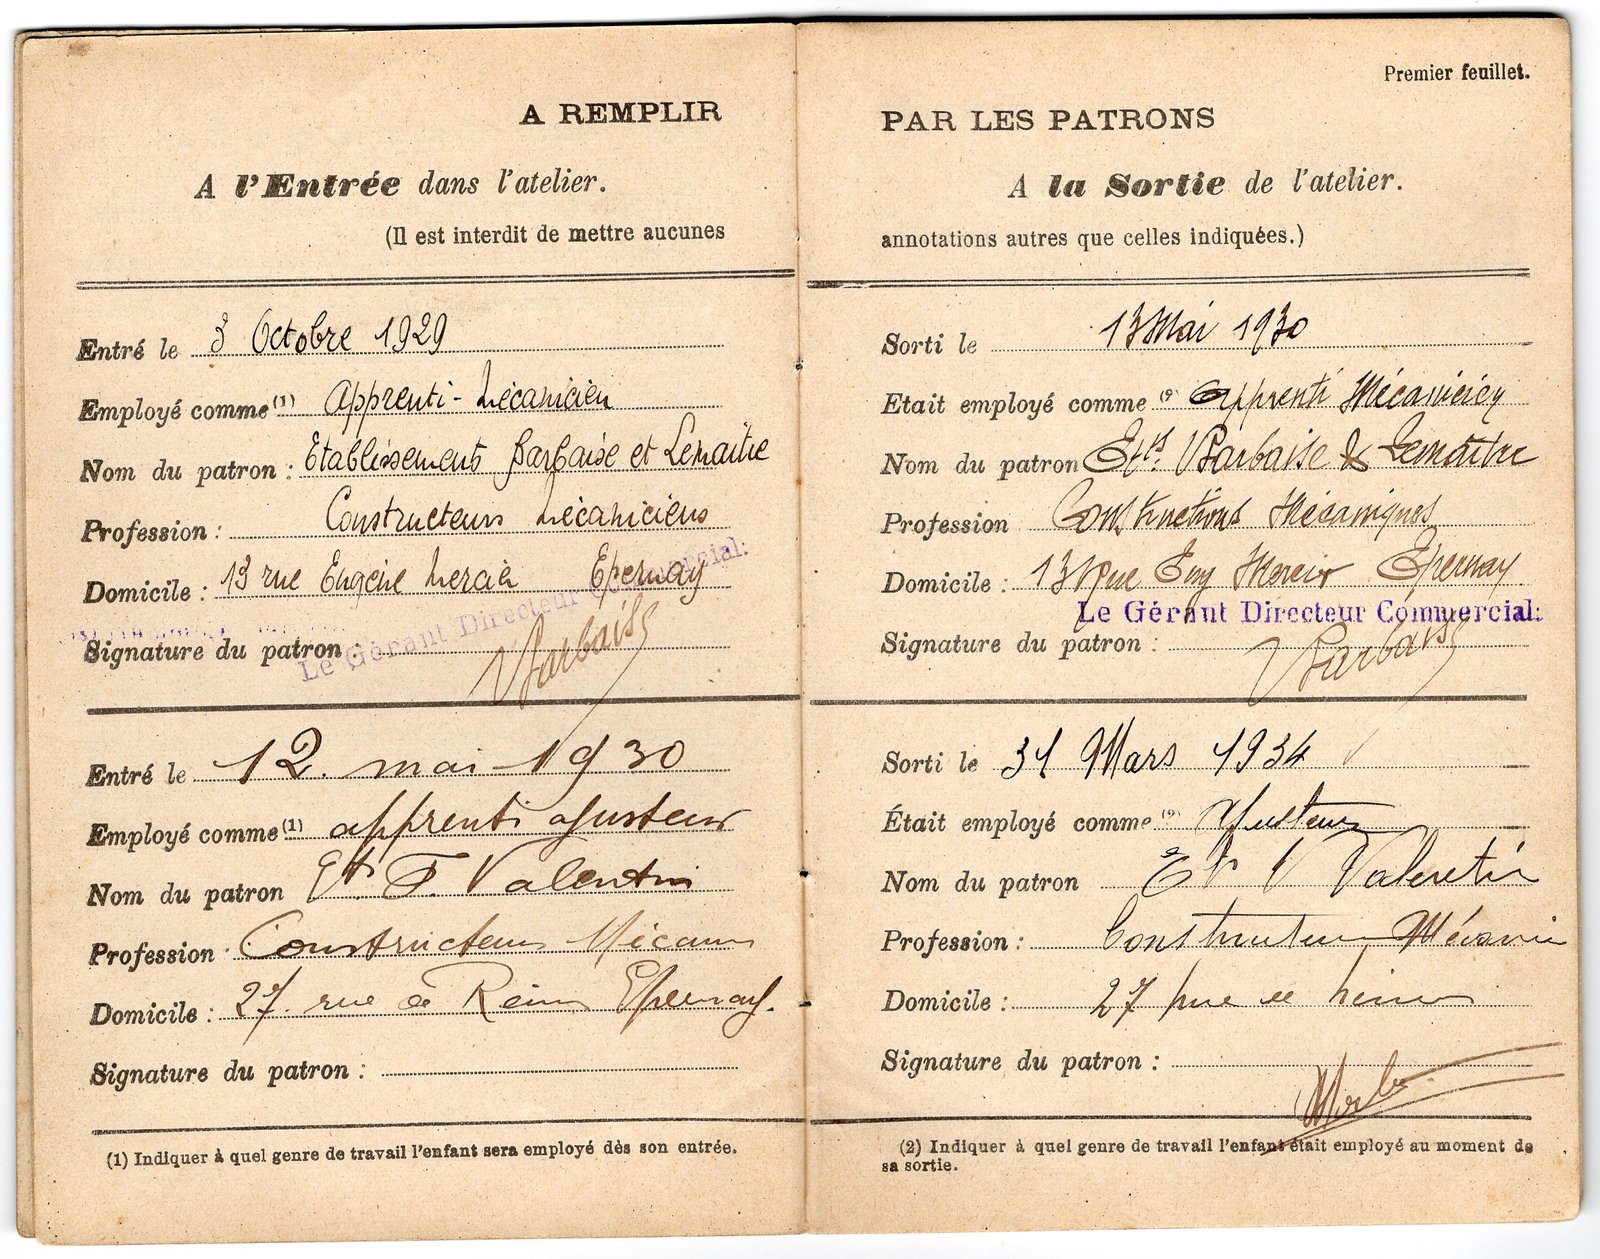 A REMPLIR
A l'Entrée dans l'atelier.
(Il est interdit de mettre aucunes
Entré le 3 Octobre 1929
Employé comme (1) Apprenti-Mécanicien
Nom du patron : Etablissements Barbaise et Lemaitre
Profession : Constructeurs Mécaniciens
Domicile : 13 rue Eugène Mercier Epernay
Le Gérant Directeur Commercial:
Signature du patron Barbaise
Entré le 12 mai 1930
Employé comme (1) apprenti ajusteur
Nom du patron Ets F. Valentin
Profession Constructeur Mécan
Domicile : 27 rue de Reims Epernay.
Signature du patron :
(1) Indiquer à quel genre de travail l'enfant sera employé dès son entrée.
Premier feuillet.
PAR LES PATRONS
A la Sortie de l'atelier.
annotations autres que celles indiquées.)
Sorti le 13 Mai 1930
Etait employé comme (2) apprenti Mécanicien
Nom du patron Ets. Barbaise & Lemaitre
Profession Constructions Mécaniques
Domicile : 13 Rue Eug Mercier Epernay
Le Gérant Directeur Commercial:
Signature du patron : Barbaise
Sorti le 31 Mars 1934
Était employé comme (2) Ajusteur
Nom du patron Ets V Valentin
Profession : Constructeur Mécanicien
Domicile : 27 rue de Reims
Signature du patron :
(2) Indiquer à quel genre de travail l'enfant était employé au moment de
sa sortie.